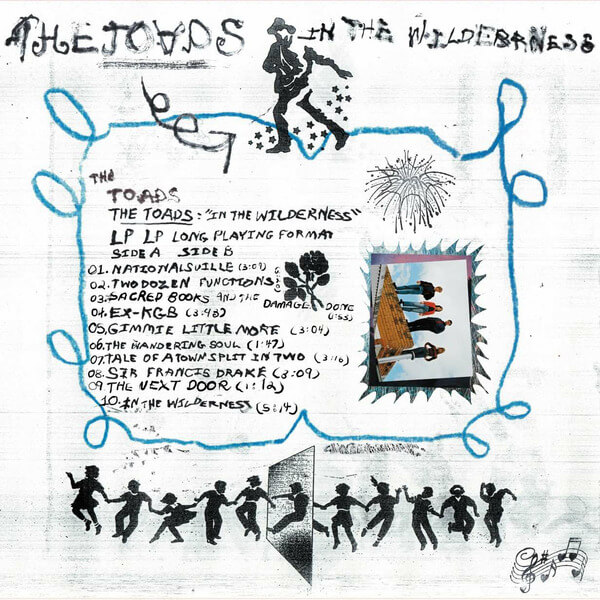 THE TOADS
IN THE WILDERNESS
THE
TOADS
THE TOADS: "IN THE WILDERNESS"
LP LP LONG PLAYING FORMAT
SIDE A SIDE B
01. NATIONALSVILLE (3:09)
02. TWO DOZEN FUNCTIONS
03. SACRED BOOKS AND THE DAMAGE DONE
04. EX-KGB (3:48)
05. GIMMIE LITTLE MORE (3:04)
06. THE WANDERING SOUL (1:47)
07. TALE OF A TOWN SPLIT IN TWO (3:16)
08. SIR FRANCIS DRAKE (3:09)
09 THE NEXT DOOR (1:12)
10. IN THE WILDERNESS (5:14)